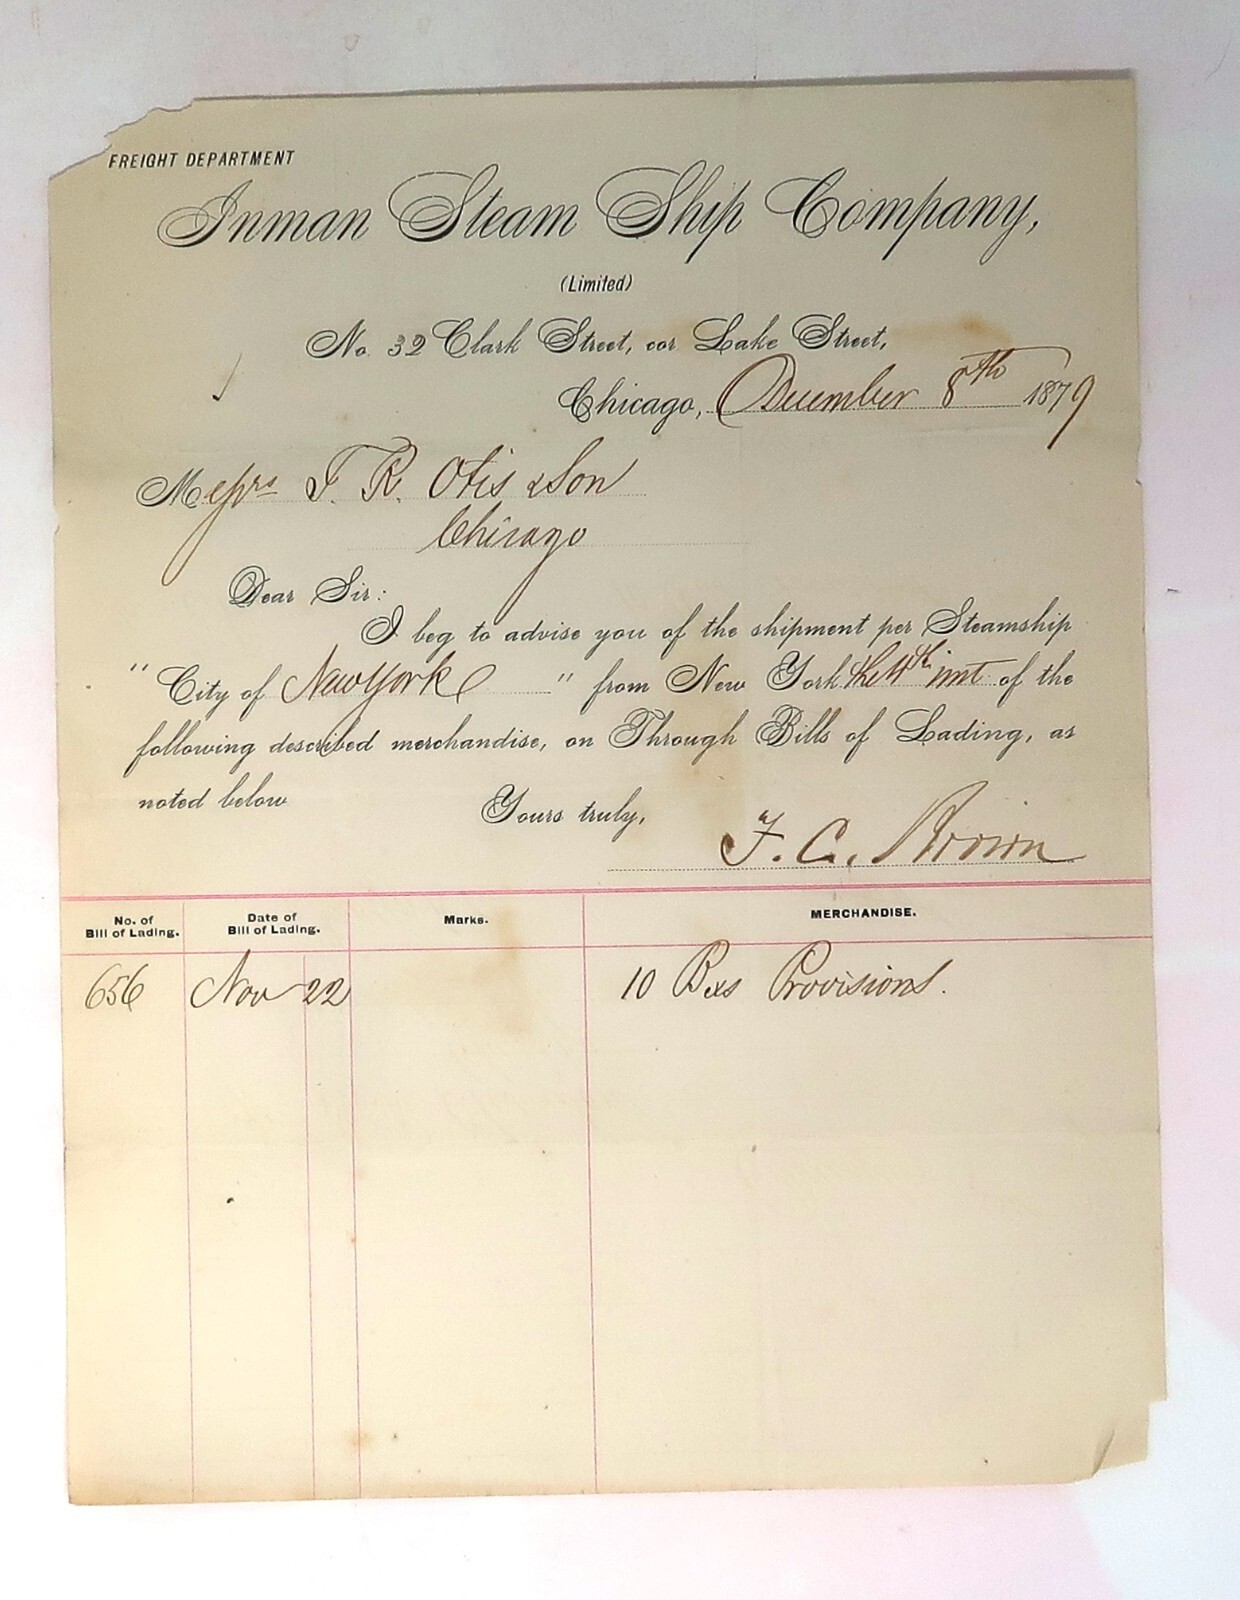 FREIGHT DEPARTMENT
Inman Steam Ship Company,
(Limited)
No. 32 Clark Street, cor Lake Street,
Chicago, December 8th 1879
Messrs F. R. Otis & Son
Chicago
Dear Sir:
I beg to advise you of the shipment per Steamship
"City of New York" from New York the 4th inst of the
following described merchandise, on Through Bills of Lading, as
noted below
Yours truly,
F. C. Brown
No. of Bill of Lading. Date of Bill of Lading. Marks. MERCHANDISE.
656 Nov 22 10 Bxs Provisions.